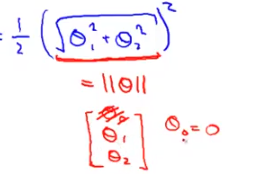 = 1/2 (√(θ₁² + θ₂²))²
= ||θ||
[θ₁ θ₂] θ₀ = 0